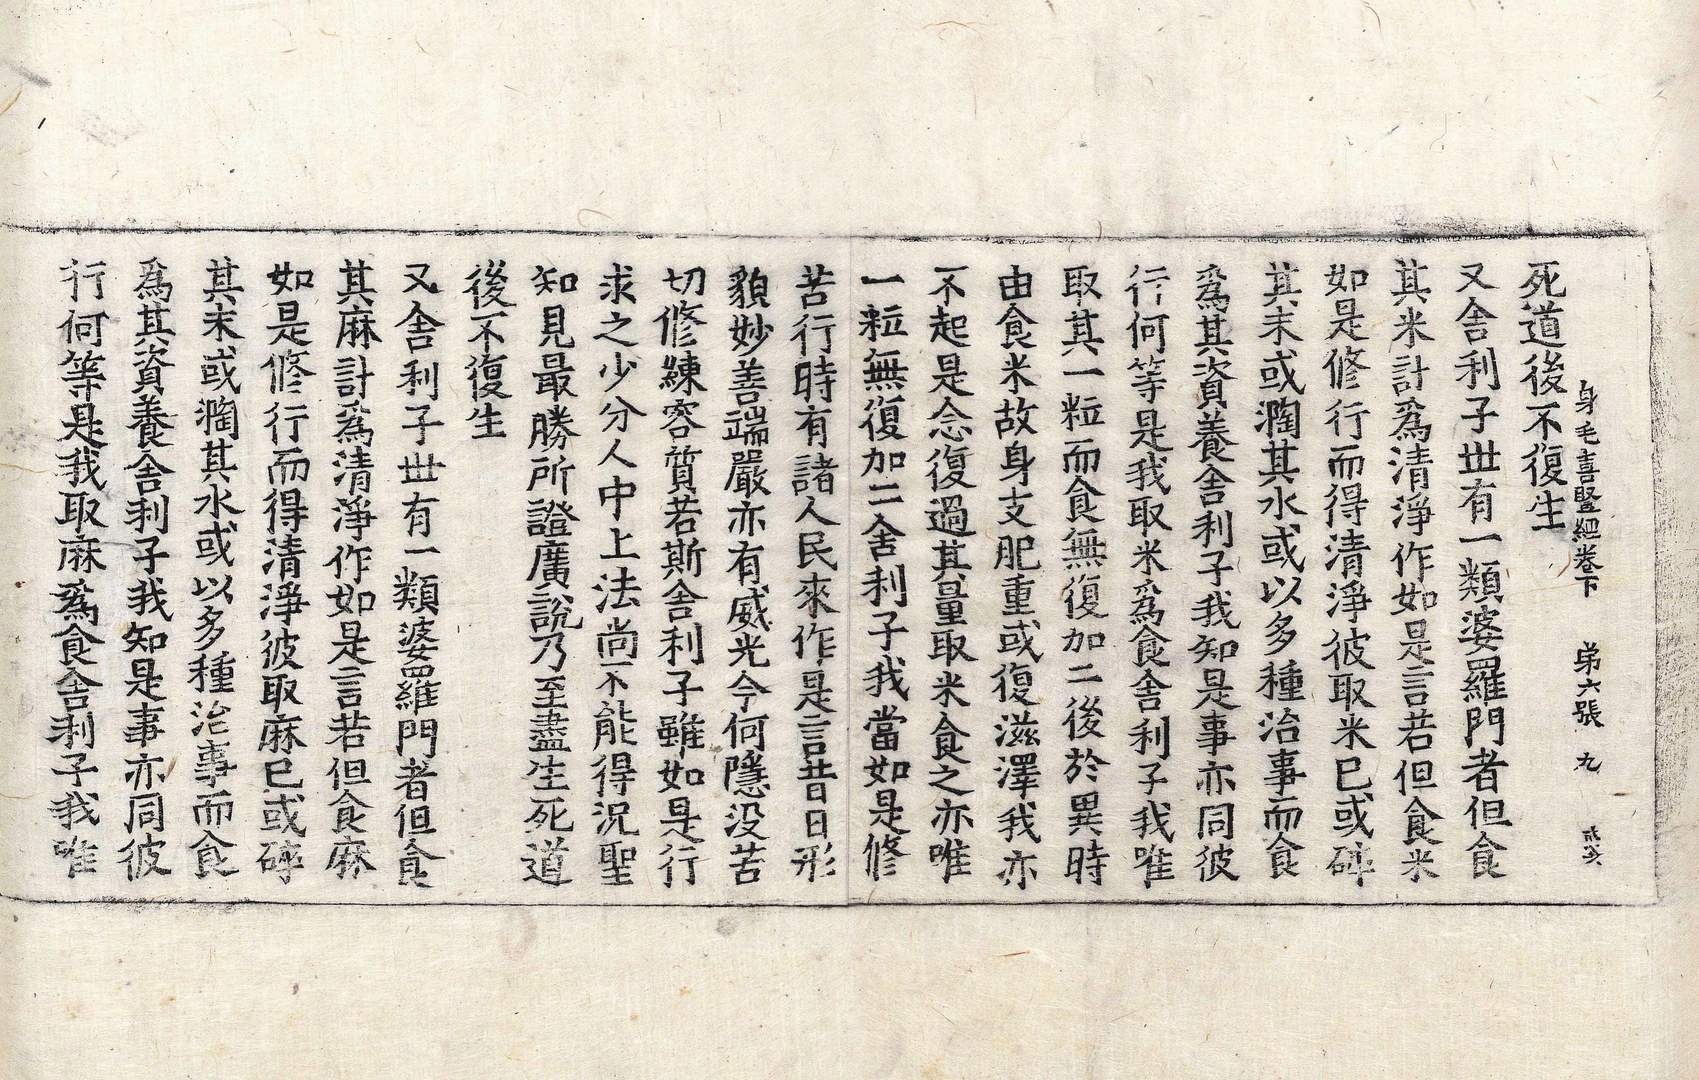 身毛喜豎經卷下 第六張 九
死道後不復生
又舍利子世有一類婆羅門者但食
其米計爲清淨作如是言若但食米
如是修行而得清淨彼取米已或碎
其末或淘其水或以多種治事而食
爲其資養舍利子我知是事亦同彼
行何等是我取米爲食舍利子我唯
取其一粒而食無復加二後於異時
由食米故身支肥重或復滋澤我亦
不起是念復過其量取米食之亦唯
一粒無復加二舍利子我當如是修
苦行時有諸人民來作是言昔日形
貌妙善端嚴亦有威光今何隱没苦
切修練容質若斯舍利子雖如是行
求之少分人中上法尚不能得況聖
知見最勝所證廣說乃至盡生死道
後不復生
又舍利子世有一類婆羅門者但食
其麻計爲清淨作如是言若但食麻
如是修行而得清淨彼取麻已或碎
其末或淘其水或以多種治事而食
爲其資養舍利子我知是事亦同彼
行何等是我取麻爲食舍利子我唯